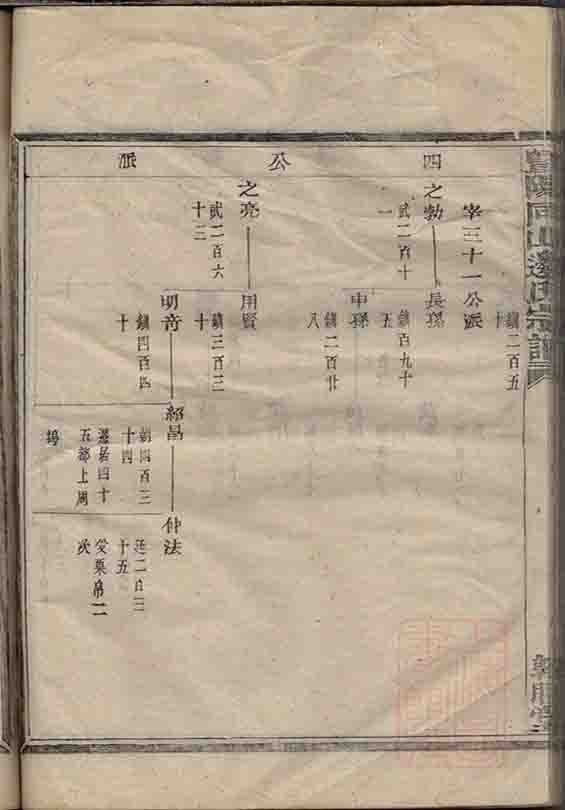 暨陽同山邊氏宗譜
四公派
鎮二百五
十
宰三十一公派
之勃
武二百十
一
長孫
鎮百九十
五
中孫
鎮二百廿
八
之亮
武二百六
十三
用賢
鎮三百三
十
明奇
鎮四百四
十
紹昌
朝四百三
十四
遷居四十
五都上周
塢
仲法
廷二百三
十五
受粟帛二
次